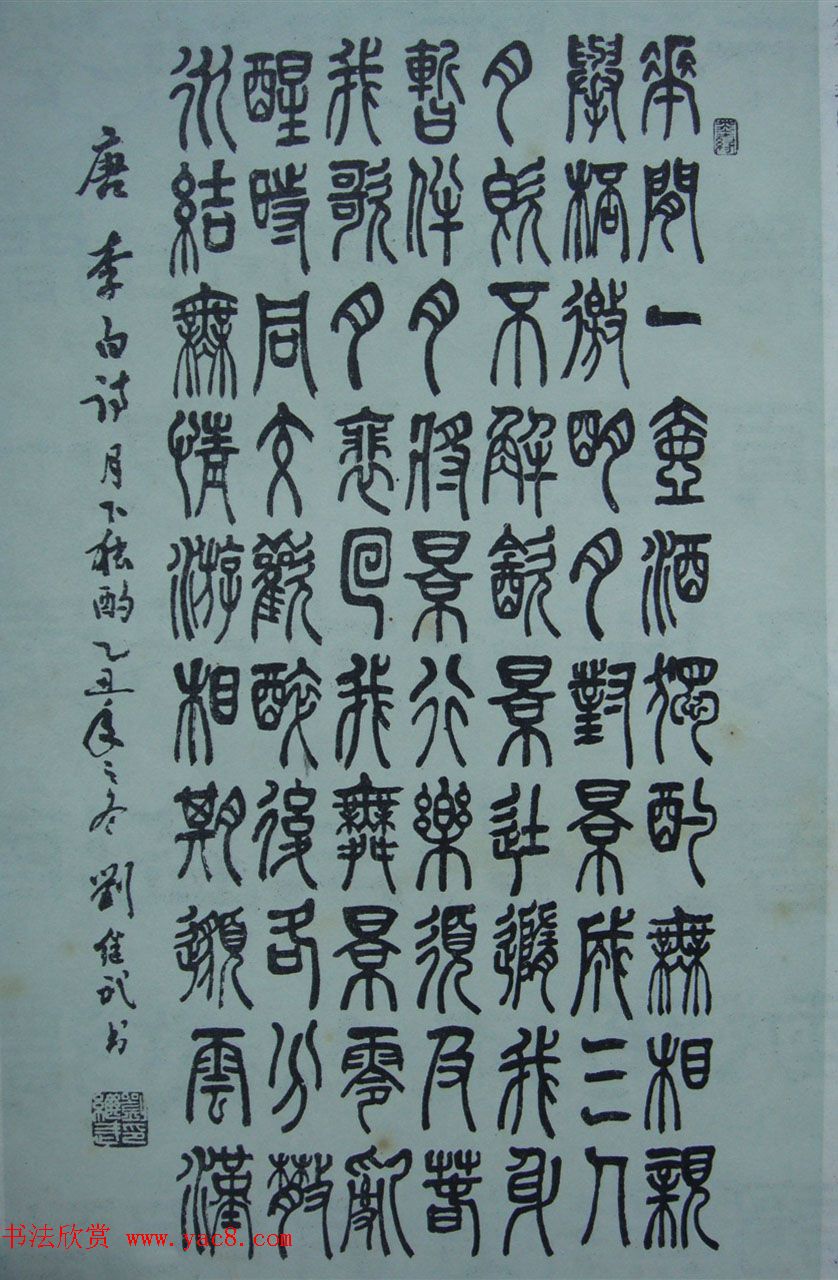 華間一壺酒獨酌無相親
舉桮邀明月對景成三人
月既不解飲景徒隨我身
暫伴月將景行樂須及春
我歌月裴回我舞景零亂
醒時同交歡醉後各分散
永結無情游相期邈雲漢
唐李白詩月下独酌乙丑年之冬劉武书
书法欣赏 www.yac8.com